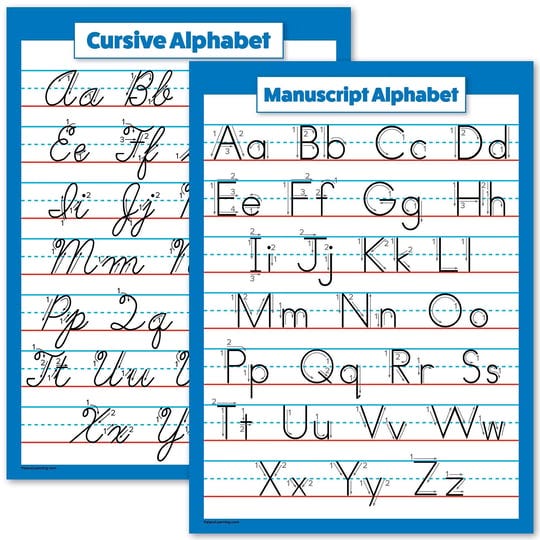 Cursive Alphabet
Aa Bb
Ee Ff
Ii Jj
Mm N
Pp Qq
Tt Uu V
Xx Y
Manuscript Alphabet
Aa Bb Cc Dd
Ee Ff Gg Hh
Ii Jj Kk Ll
Mm Nn Oo
Pp Qq Rr Ss
Tt Uu Vv Ww
Xx Yy Zz